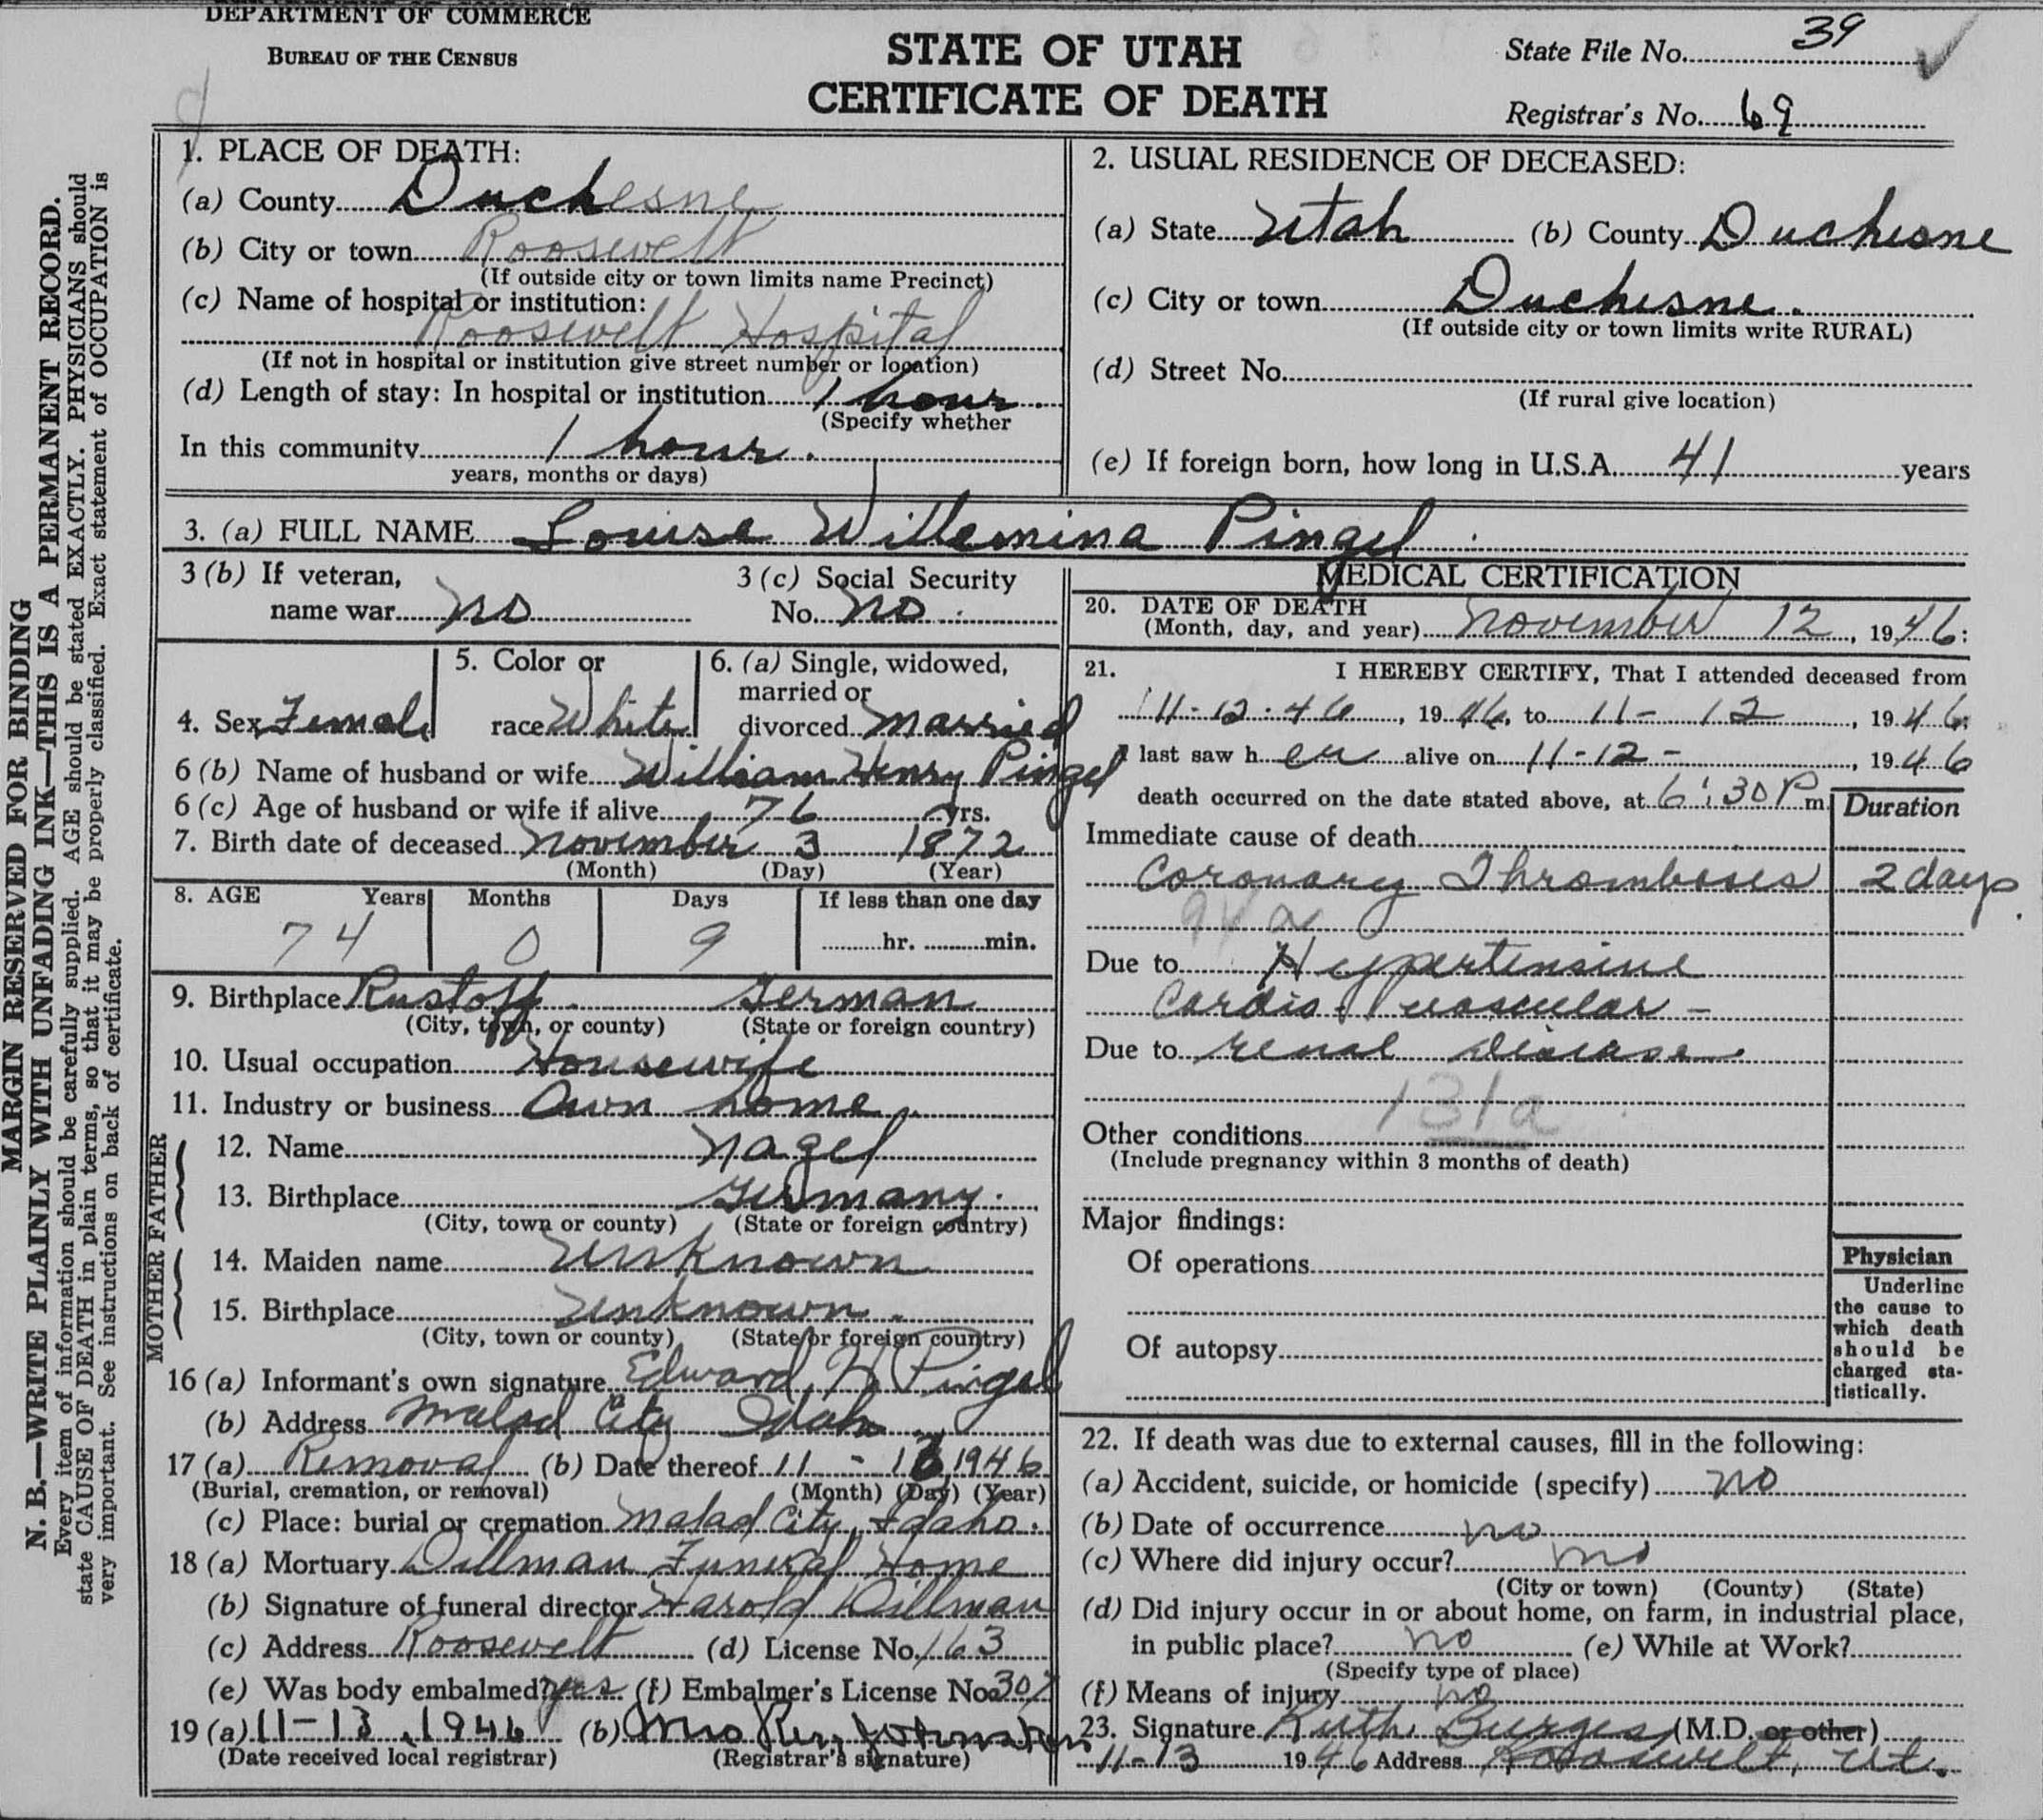 DEPARTMENT OF COMMERCE
BUREAU OF THE CENSUS
STATE OF UTAH
CERTIFICATE OF DEATH
State File No. 39
Registrar's No. 69
MARGIN RESERVED FOR BINDING
N. B.—WRITE PLAINLY WITH UNFADING INK—THIS IS A PERMANENT RECORD.
Every item of information should be carefully supplied. AGE should be stated EXACTLY. PHYSICIANS should
state CAUSE OF DEATH in plain terms, so that it may be properly classified. Exact statement of OCCUPATION is
very important. See instructions on back of certificate.
1. PLACE OF DEATH:
(a) County Duchesne
(b) City or town Roosevelt
(If outside city or town limits name Precinct)
(c) Name of hospital or institution:
Roosevelt Hospital
(If not in hospital or institution give street number or location)
(d) Length of stay: In hospital or institution 1 hour.
(Specify whether
In this community 1 hour.
years, months or days)
2. USUAL RESIDENCE OF DECEASED:
(a) State Utah (b) County Duchesne
(c) City or town Duchesne.
(If outside city or town limits write RURAL)
(d) Street No.
(If rural give location)
(e) If foreign born, how long in U.S.A. 41 years
3. (a) FULL NAME Louise Willemina Pingel
3 (b) If veteran,
name war no
3 (c) Social Security
No. no.
4. Sex Female
5. Color or
race White
6. (a) Single, widowed,
married or
divorced married
6 (b) Name of husband or wife William Henry Pingel
6 (c) Age of husband or wife if alive 76 yrs.
7. Birth date of deceased November 3 1872
(Month) (Day) (Year)
8. AGE Years Months Days If less than one day
74 0 9 hr. min.
9. Birthplace Rustoff. German
(City, town, or county) (State or foreign country)
10. Usual occupation Housewife
11. Industry or business Own home
FATHER
12. Name Nagel
13. Birthplace Germany.
(City, town or county) (State or foreign country)
MOTHER
14. Maiden name Unknown
15. Birthplace Unknown.
(City, town or county) (State or foreign country)
16 (a) Informant's own signature Edward H Pingel
(b) Address Malad City Idaho
17 (a) Removal (b) Date thereof 11 - 1946
(Burial, cremation, or removal) (Month) (Day) (Year)
(c) Place: burial or cremation Malad City, Idaho.
18 (a) Mortuary Dillman Funeral Home
(b) Signature of funeral director Harold Dillman
(c) Address Roosevelt (d) License No. 163
(e) Was body embalmed? yes (f) Embalmer's License No. 307
19 (a) 11-13, 1946 (b) Mrs
(Date received local registrar) (Registrar's signature)
MEDICAL CERTIFICATION
20. DATE OF DEATH
(Month, day, and year) November 12, 1946:
21. I HEREBY CERTIFY, That I attended deceased from
11-12-46, 1946, to 11- 12, 1946;
I last saw her alive on 11-12-, 1946
death occurred on the date stated above, at 6:30 P m. Duration
Immediate cause of death
Coronary Thrombosis 2 days
94a
Due to Hypertensive
Cardio vascular -
Due to renal disease.
131a
Other conditions
(Include pregnancy within 3 months of death)
Major findings:
Of operations
Of autopsy
Physician
Underline
the cause to
which death
should be
charged sta-
tistically.
22. If death was due to external causes, fill in the following:
(a) Accident, suicide, or homicide (specify) no
(b) Date of occurrence no
(c) Where did injury occur? no
(City or town) (County) (State)
(d) Did injury occur in or about home, on farm, in industrial place,
in public place? no (e) While at Work?
(Specify type of place)
(f) Means of injury no
23. Signature Ruth Burges (M.D. or other)
11-13 1946 Address Roosevelt, Ut.